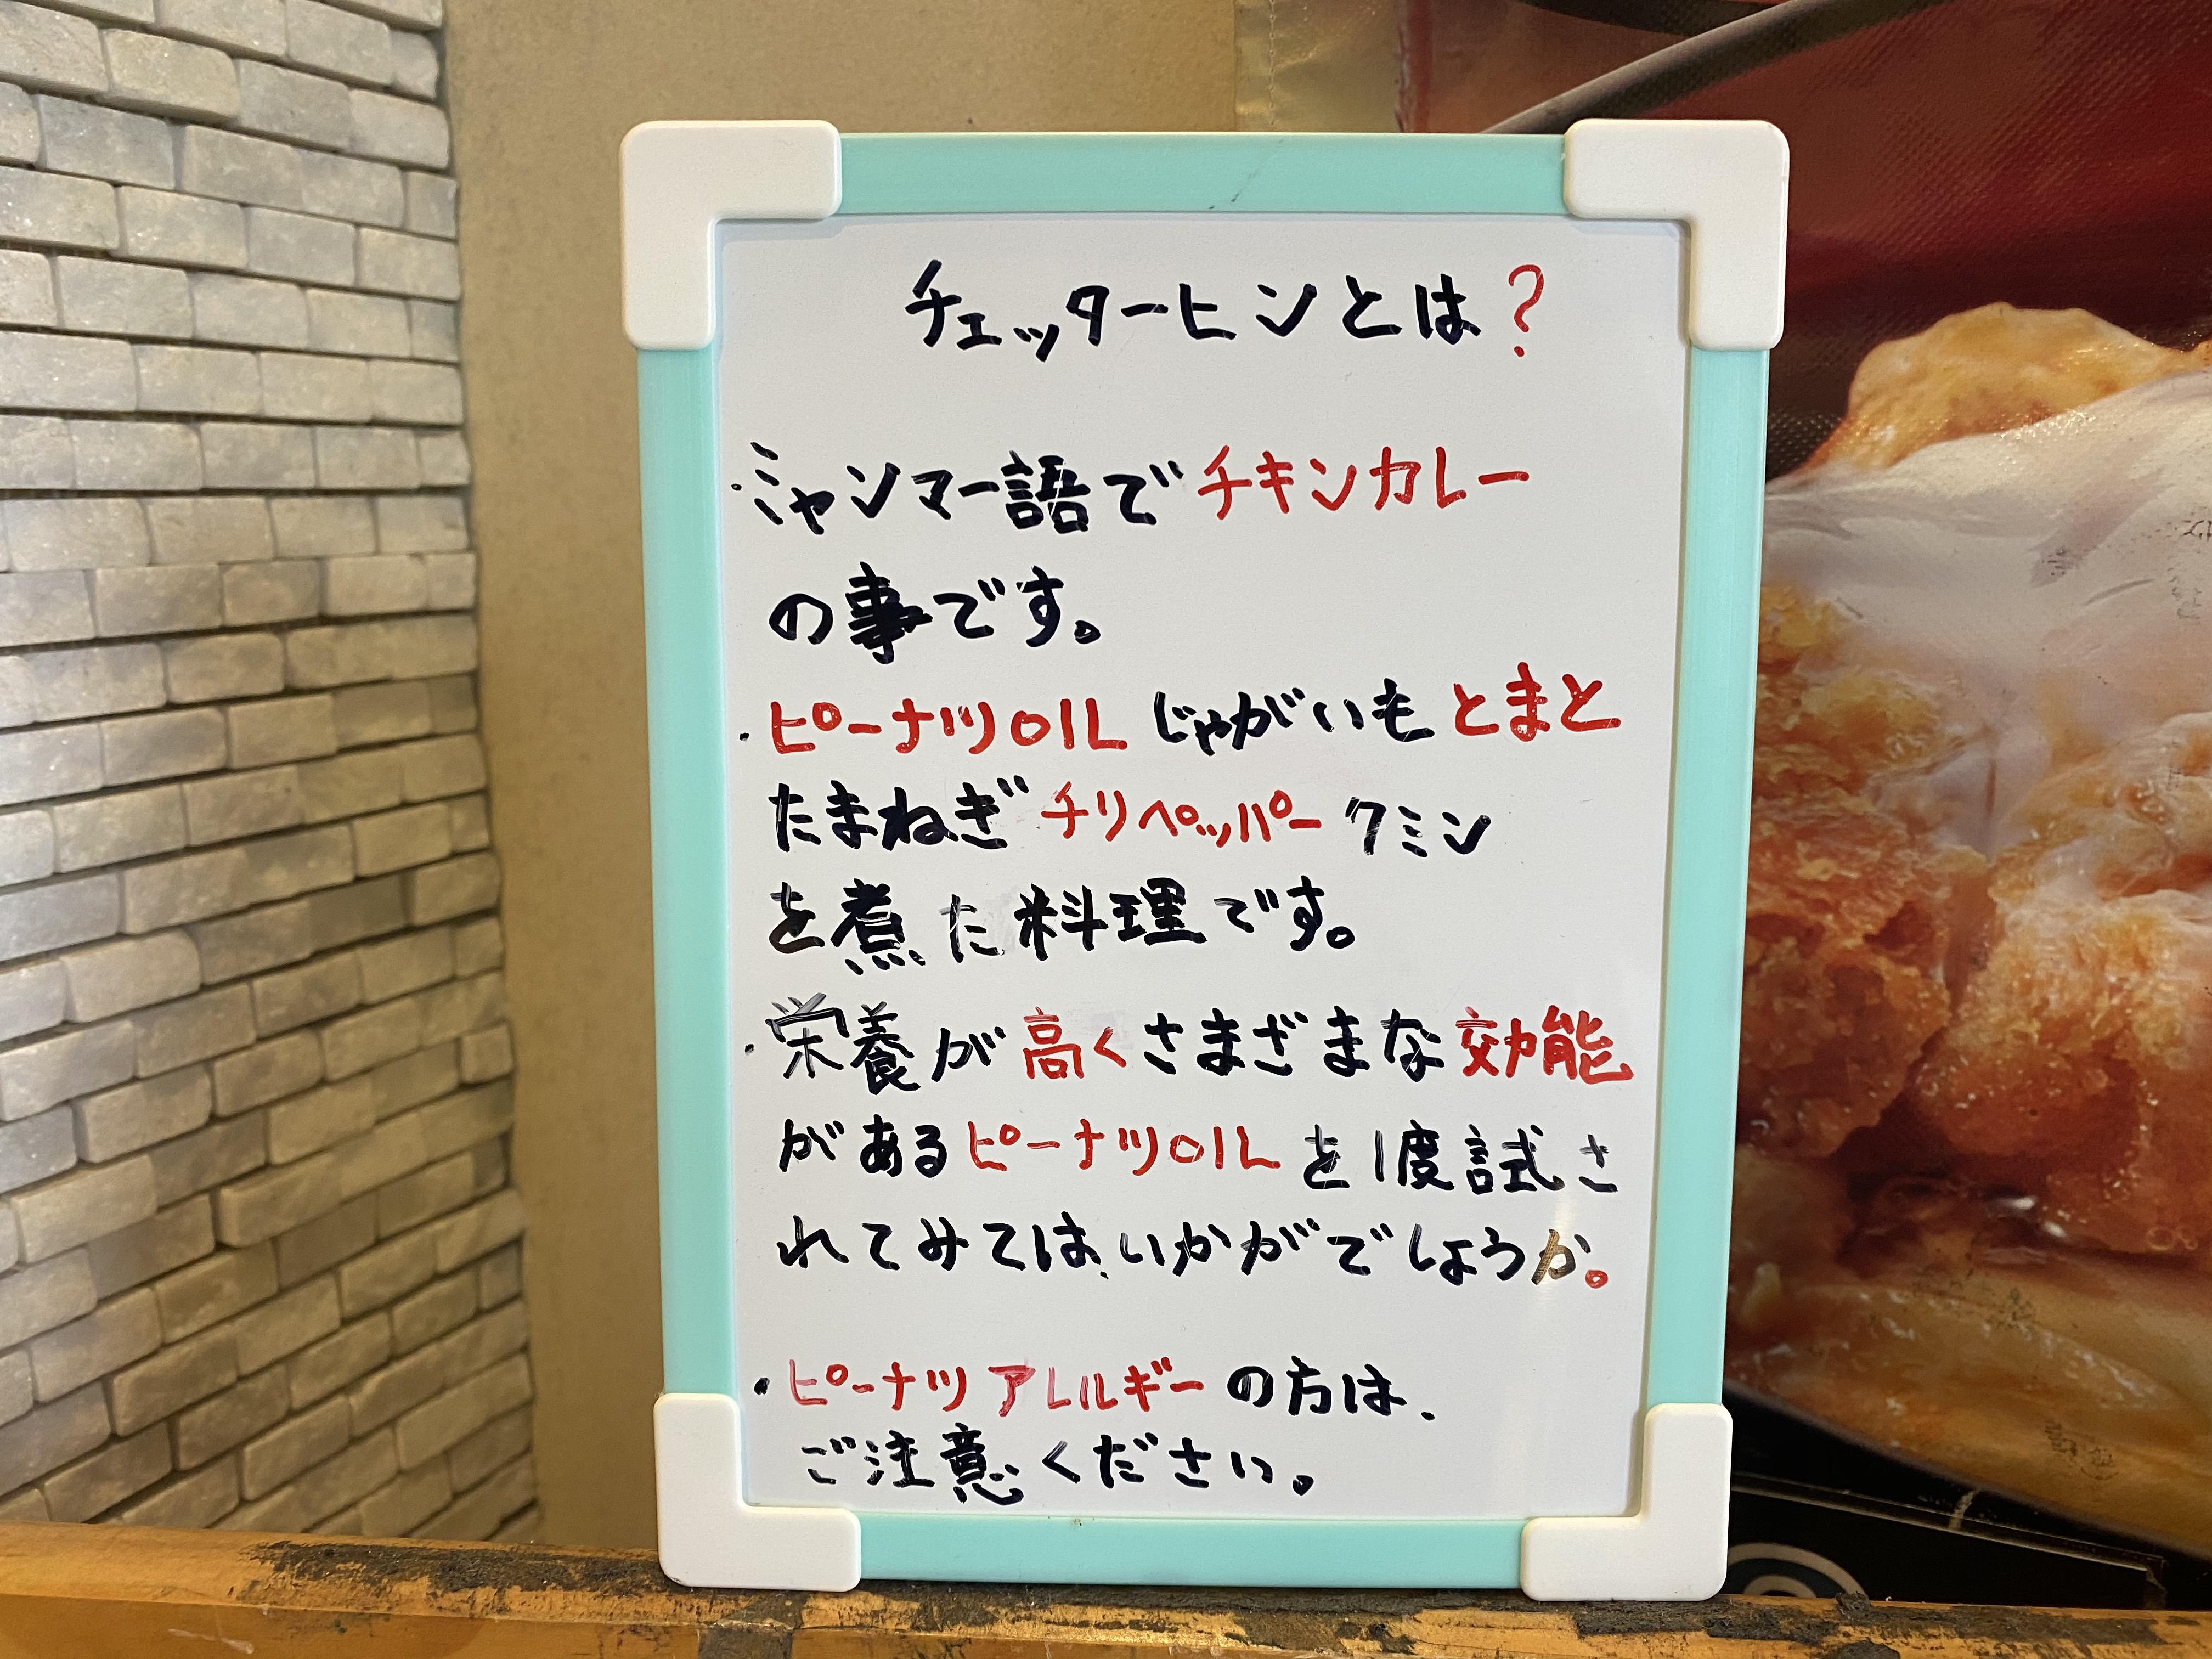 チェッターヒンとは?
・ミャンマー語でチキンカレー
の事です。
・ピーナツOIL じゃがいも とまと
たまねぎ チリペッパー クミン
を煮た料理です。
・栄養が高くさまざまな効能
があるピーナツOILを1度試さ
れてみてはいかがでしょうか。
・ピーナツアレルギーの方は、
ご注意ください。